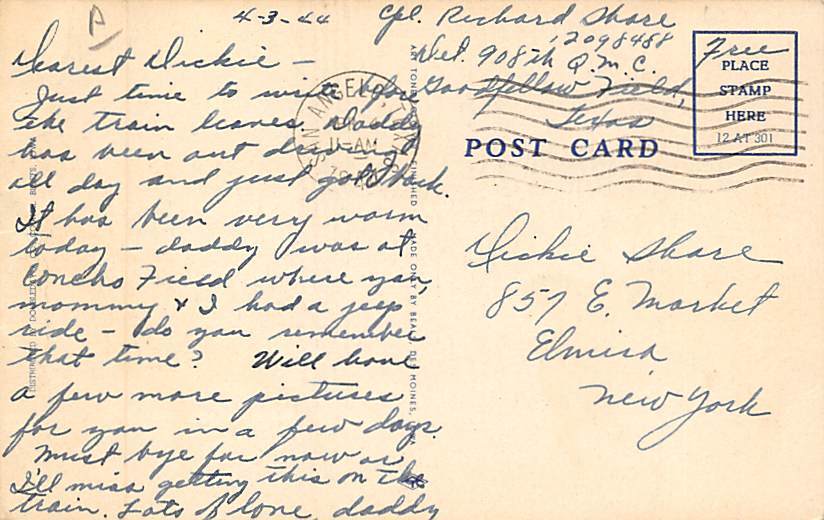 4-3-44
Cpl. Richard Share
12098488
Det. 908th Q.M.C.
Goodfellow Field,
Texas
Free
PLACE
STAMP
HERE
12 AT 301
POST CARD
SAN ANGELO
AM
Dearest Dickie -
Just time to write before
the train leaves. Daddy
has been out driving
all day and just got back.
It has been very warm
today - daddy was at
Concho Field where you,
mommy & I had a jeep
ride - do you remember
that time? Will have
a few more pictures
for you in a few days.
Must bye for now or
I'll miss getting this on the
train. Lots of love, daddy
Dickie Share
857 E. Market
Elmira
New York